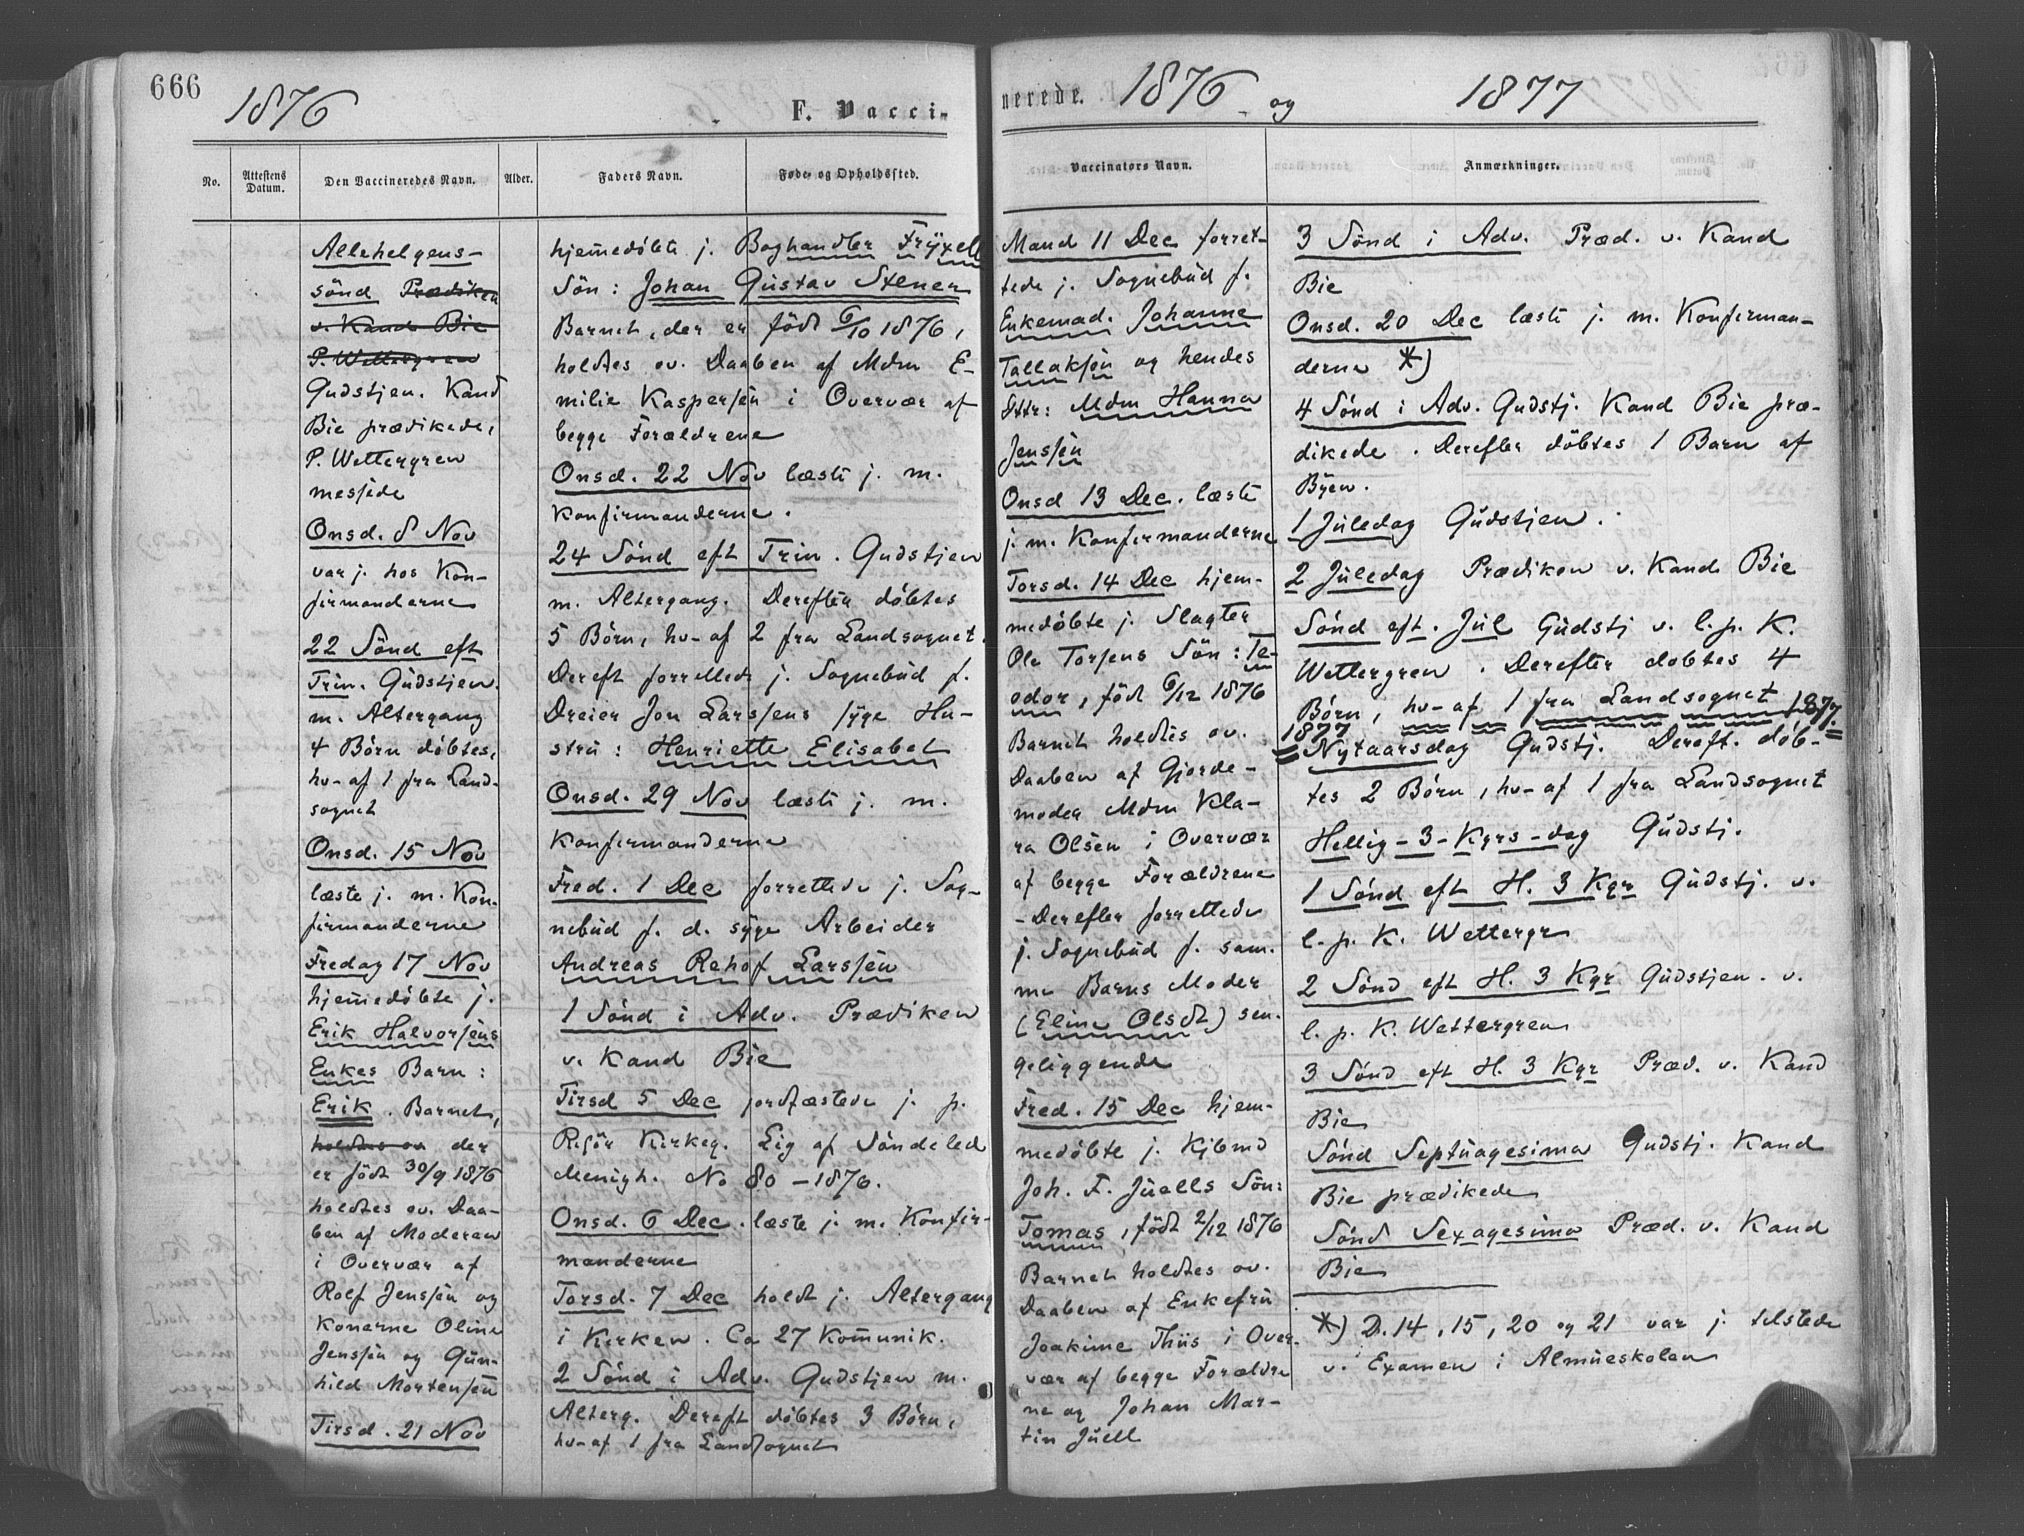 666
1876
F. Vacci-
No.
Attestens Datum.
Den Vaccineredes Navn.
Alder.
Faders Navn.
Føde- og Opholdssted.
Allehelgens-
sønd Prædiken
v. Kand Bie
P. Wettergren
Gudstjen. Kand
Bie prædikede,
P. Wettergren
messede
Onsd. 8 Nov
var j. hos Kon-
firmanderne
22 Sønd eft
Trin. Gudstjen.
m. Altergang
4 Børn døbtes,
hv- af 1 fra Land-
sognet
Onsd. 15 Nov
læste j. m. Kon-
firmanderne
Fredag 17 Nov
hjem̄edøbte j.
Erik Halvorsens
Enkes Barn:
Erik. Barnet,
holdtes ov der
er født 30/9 1876
holdtes ov. Daa-
ben af Moderen
i Overvær af
Rolf Jenssen og
Konerne Oline
Jenssen og Gun-
hild Mortensen
Tirsd. 21 Nov
hjem̄edøbte j. Boghandler Fryxell
Søn: Johan Gustav Stener
Barnet, der er født 6/10 1876,
holdtes ov. Daaben af Mdm E-
milie Kaspersen i Overvær af
begge Forældrene
Onsd. 22 Nov læste j. m.
Konfirmanderne.
24 Sønd eft Trin. Gudstjen
m. Altergang. Derefter døbtes
5 Børn, hv- af 2 fra Landsognet.
Dereft forrettede j. Sognebud f.
Dreier Jon Larssens syge Hu-
stru: Henriette Elisabet
Onsd. 29 Nov læste j. m.
Konfirmanderne
Fred. 1 Dec forrettede j. Sog-
nebud f. d. syge Arbeider
Andreas Rehof Larssen
1 Sønd i Adv. Prædiken
v. Kand Bie
Tirsd 5 Dec jordfæstede j. p.
Risør Kirkeg. Lig af Søndeled
Menigh. No 80 - 1876.
Onsd. 6 Dec. læste j. m. Konfir-
manderne
Torsd. 7 Dec holdt j. Altergang
i Kirken. Ca 27 Kom̄unik.
2 Sønd i Adv. Gudstjen m.
Alterg. Dereft døbtes 3 Børn,
hv- af 1 fra Landsognet
nerede. 1876 og 1877
Vaccinators Navn.
Anmærkninger.
Mand 11 Dec forret-
tede j. Sognebud f.
Enkemad. Johanne
Tallaksen og hendes
Dttr: Mdm Hanna
Jenssen
Onsd 13 Dec. læste
j. m. Konfirmanderne
Torsd. 14 Dec hjem-
medøbte j. Slagter
Ole Torsens Søn: Te-
odor, født 6/12 1876
Barnet holdtes ov.
Daaben af Gjorde-
moder Mdm Kla-
ra Olsen i Overvær
af begge Forældrene
- Derefter forrettede
j. Sognebud f. sam-
me Barns Moder
(Eline Olsdt) sen-
geliggende
Fred. 15 Dec hjem-
medøbte j. Kjbmd
Joh. F. Juells Søn:
Tomas, født 2/12 1876
Barnet holdtes ov.
Daaben af Enkefru
Joakime Thiis i Over-
vær af begge Forældre
ne og Johan Mar-
tin Juell
3 Sønd i Adv. Præd. v. Kand
Bie
Onsd. 20 Dec læste j. m. Konfirman-
derne *)
4 Sønd i Adv. Gudstj. Kand Bie præ-
dikede. Derefter døbtes 1 Barn af
Byen.
1 Juledag Gudstjen.
2 Juledag Prædiken v. Kand Bie
Sønd eft. Jul Gudstj v. l. p. K.
Wettergren. Derefter døbtes 4
Børn, hv- af 1 fra Landsognet 1877.
1877
Nytaarsdag Gudstj. Dereft. døb-
tes 2 Børn, hv- af 1 fra Landsognet
Hellig-3-Kgrs-dag Gudstj.
1 Sønd eft H. 3 Kgr Gudstj. v.
l. p. K. Wettergr
2 Sønd eft H. 3 Kgr Gudstjen. v.
l. p. K. Wettergren
3 Sønd eft H. 3 Kgr Præd. v. Kand
Bie
Sønd Septuagesima Gudstj. Kand
Bie prædikede
Sønd Sexagesima Præd. v. Kand
Bie
*) D. 14, 15, 20 og 21 var j. tilstede
v. Examen i Almueskolen